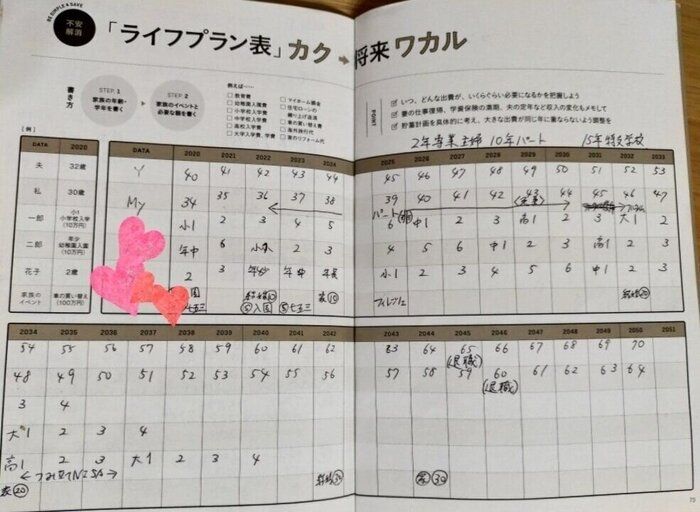 BE SIMPLE & SAVE
不安解消
「ライフプラン表」カク→将来ワカル
書き方
STEP. 1
家族の年齢・学年を書く
STEP. 2
家族のイベントと必要な額を書く
例えば……
□ 教育費
□ 幼稚園入園費
□ 小学校入学費
□ 中学校入学費
□ 高校入学費
□ 大学入学費、学費
□ マイホーム頭金
□ 住宅ローンの繰り上げ返済
□ 車の買い替え費
□ 海外旅行代
□ 家のリフォーム代
POINT
いつ、どんな出費が、いくらぐらい必要になるかを把握しよう
妻の仕事復帰、学資保険の満期、夫の定年など収入の変化もメモして
貯蓄計画を具体的に考え、大きな出費が同じ年に重ならないよう調整を
2年専業主婦 10年パート 15年特支学校
[例]
DATA 2020
夫 32歳
私 30歳
一郎 小1 小学校入学 (10万円)
二郎 年少 幼稚園入園 (10万円)
花子 2歳
家族のイベント 車の買い替え (100万円)
DATA 2020 2021 2022 2023 2024
Y 40 41 42 43 44
My 34 35 36 37 38
小1 2 3 4 5
年中 6 小1 2 3
2 3 年少 年中 年長
七五三 入園 七五三
2025 2026 2027 2028 2029 2030 2031 2032 2033
45 46 47 48 49 50 51 52 53
39 40 41 42 43 44 45 46 47
パート
6 中1 2 3 高1 2 3 大1 2
4 5 6 中1 2 3 高1 2 3
小1 2 3 4 5 6 中1 2 3
2034 2035 2036 2037 2038 2039 2040 2041 2042
54 55 56 57 58 59 60 61 62
48 49 50 51 52 53 54 55 56
3 4
大1 2 3 4
高1 2 3 大1 2 3 4
つみ立てNISA
2043 2044 2045 2046 2047 2048 2049 2050 2051
63 64 65 66 67 68 69 70
(退職)
57 58 59 60 61 62 63 64
(退職)
75